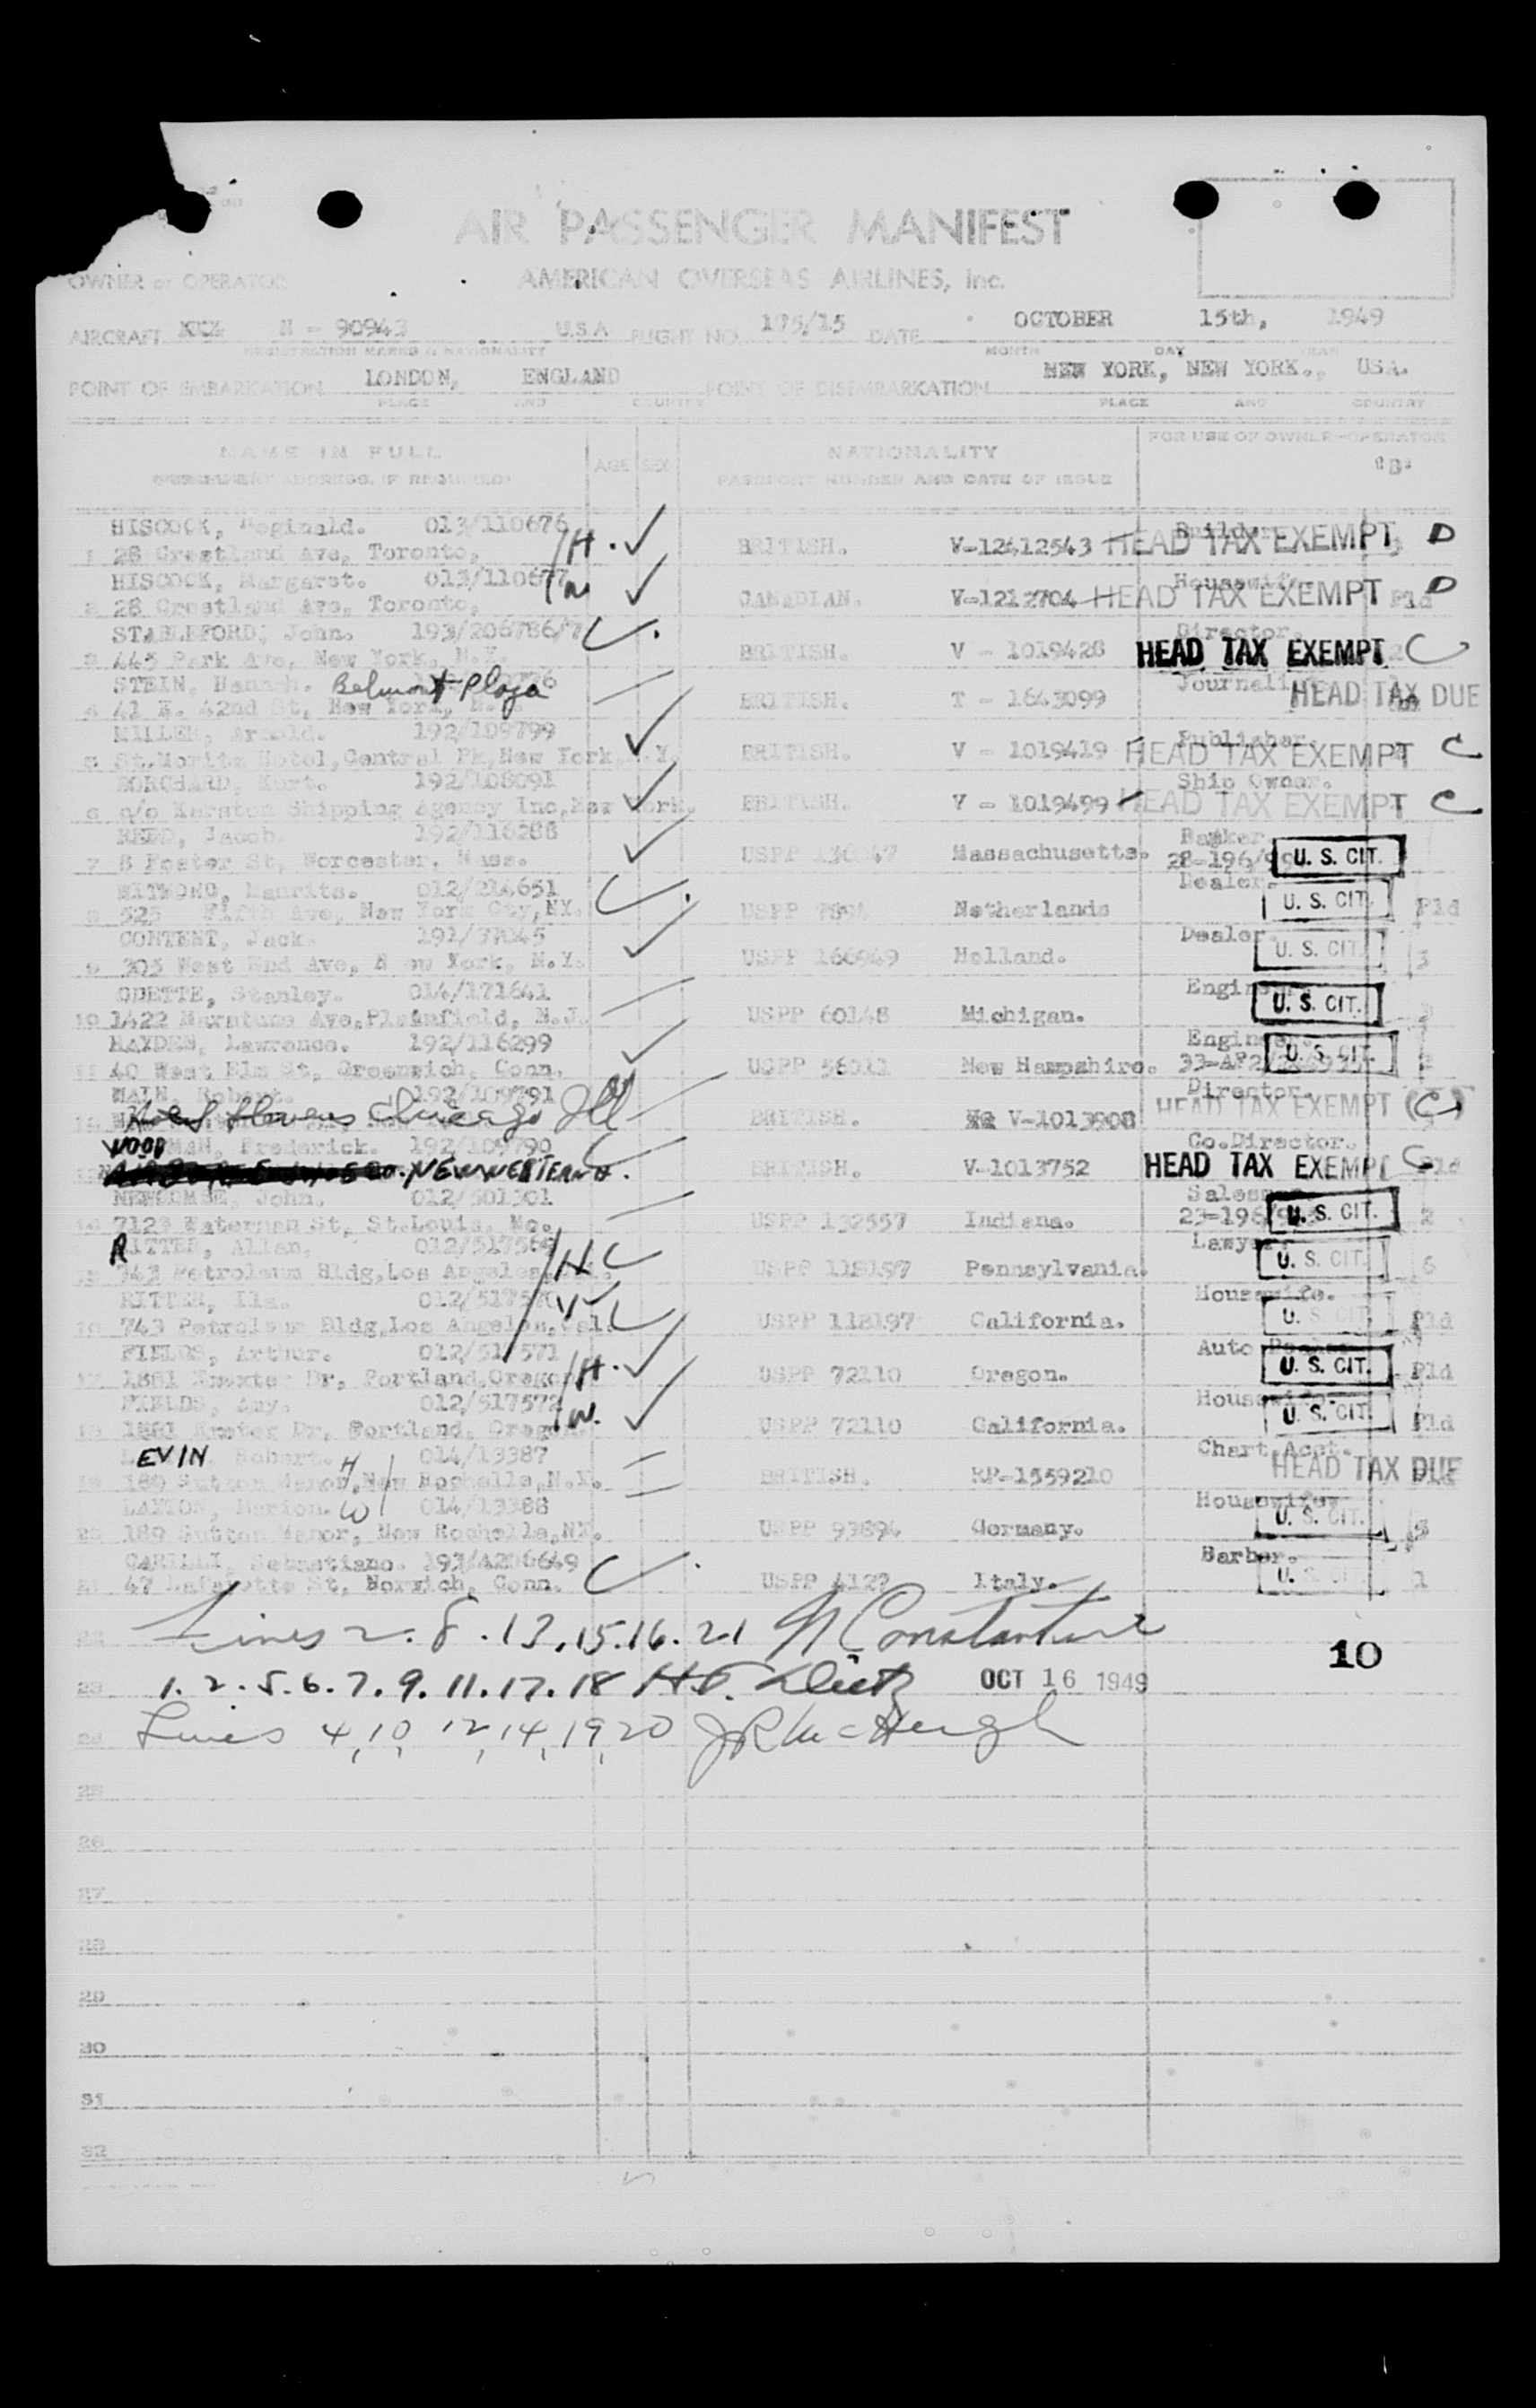 AIR PASSENGER MANIFEST
OWNER or OPERATOR AMERICAN OVERSEAS AIRLINES, Inc.
AIRCRAFT N - 90943 U.S.A FLIGHT NO. 175/15 DATE OCTOBER 15th, 1949
REGISTRATION MARKS & NATIONALITY MONTH DAY YEAR
POINT OF EMBARKATION LONDON, ENGLAND POINT OF DISEMBARKATION NEW YORK, NEW YORK., USA.
PLACE AND COUNTRY PLACE AND COUNTRY
NAME IN FULL AGE SEX NATIONALITY FOR USE OF OWNER-OPERATOR
PASSPORT NUMBER AND DATE OF ISSUE "B"
HISCOCK, Reginald. 013/110676 H. Builder
1 28 Crestland Ave, Toronto, BRITISH. V-12412543 HEAD TAX EXEMPT D
HISCOCK, Margaret. 013/110677 W Housewife.
2 28 Crestland Ave, Toronto, CANADIAN. V-1212704 HEAD TAX EXEMPT Pld D
STABLEFORD, John. 193/206786/7 Director.
3 445 Park Ave, New York, N.Y. BRITISH. V - 1019428 HEAD TAX EXEMPT C
STEIN, Hannah. Belmont Plaza Journalist
4 41 E. 42nd St, New York, N.Y. BRITISH. T - 1643099 HEAD TAX DUE
MILLER, Arnold. 192/109799 Publisher.
5 St.Moritz Hotel,Central Pk,New York,N.Y. BRITISH. V - 1019419 HEAD TAX EXEMPT C
BORCHARD, Kurt. 192/108091 Ship Owner.
6 c/o Karston Shipping Agency Inc,New York. BRITISH. V - 1019499 HEAD TAX EXEMPT C
REED, Jacob. 192/116288 Banker
7 8 Foster St, Worcester, Mass. USPP Massachusetts. 28-196/ U. S. CIT.
Maurits. 012/214651 Dealer.
8 525 Fifth Ave, New York Cty,NY. USPP Netherlands U. S. CIT. Pld
CONTENT, Jack. 191/37045 Dealer
9 305 West End Ave, N ew York, N.Y. USPP 166949 Holland. U. S. CIT. 3
ODETTE, Stanley. 014/171641 Engineer
10 1422 Ave,Plainfield, N.J. USPP 60148 Michigan. U. S. CIT.
HAYDEN, Lawrence. 192/116299 Engineer
11 40 West Elm St, Greenwich, Conn. USPP 56011 New Hampshire. U. S. CIT.
MAIN, Robert. 192/109791 Director.
12 Hotel Stevens Chicago Ill BRITISH. V-1013908 HEAD TAX EXEMPT (C)
WOODMAN, Frederick. 192/109790 Co.Director.
NEW WESTERN H. BRITISH. V-1013752 HEAD TAX EXEMPT C Pld
NEWCOMBE, John. 012/501301 Salesman
14 7123 Waterman St, St.Louis, Mo. USPP 132557 Indiana. 23-196/ U. S. CIT. 2
RITTER, Allan. 012/517569 H Lawyer
15 743 Petroleum Bldg,Los Angeles,Cal. USPP 118197 Pennsylvania. U. S. CIT. 6
RITTER, Ila. 012/517570 W Housewife.
16 743 Petroleum Bldg,Los Angeles,Cal. USPP 118197 California. U. S. CIT. Pld
FIELDS, Arthur. 012/517571 H. Auto
17 1881 Dr, Portland,Oregon USPP 72110 Oregon. U. S. CIT. Pld
FIELDS, Amy. 012/517572 W. Housewife.
18 1881 Dr, Portland, Oregon USPP 72110 California. U. S. CIT. Pld
LEVIN, Robert. H 014/13387 Chart.Acct.
19 189 Sutton Manor,New Rochelle,N.Y. BRITISH. RP-1559210 HEAD TAX DUE
Marion. W 014/13388 Housewife
20 189 Sutton Manor, New Rochelle,NY. USPP 93894 Germany. U. S. CIT. 3
CARILLI, Sebastiano. 193/4206649 Barber.
21 47 Lafayette St, Norwich, Conn. USPP 4127 Italy. U. S. CIT 1
22 Lines 2. 8. 13, 15. 16. 21 N Constantine 10
23 1. 2. 5. 6. 7. 9. 11. 17. 18 OCT 16 1949
24 Lines 4, 10, 12, 14, 19, 20 J R McHugh
25
26
27
28
29
30
31
32